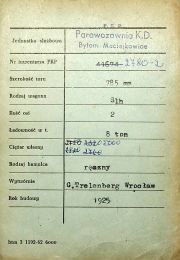 P.K.P.
Jednostka służbowa
Parowozownia K.D.
Bytom Maciejkowice
Nr inwentarza PKP
44674 2780-2
Szerokość toru
785 mm
Rodzaj wagonu
Ilość osi
2
Ładowność w t.
8 ton
Ciężar własny
Rodzaj hamulca
ręczny
Wytwórnia
G.Trelenberg Wrocław
Rok budowy
1925